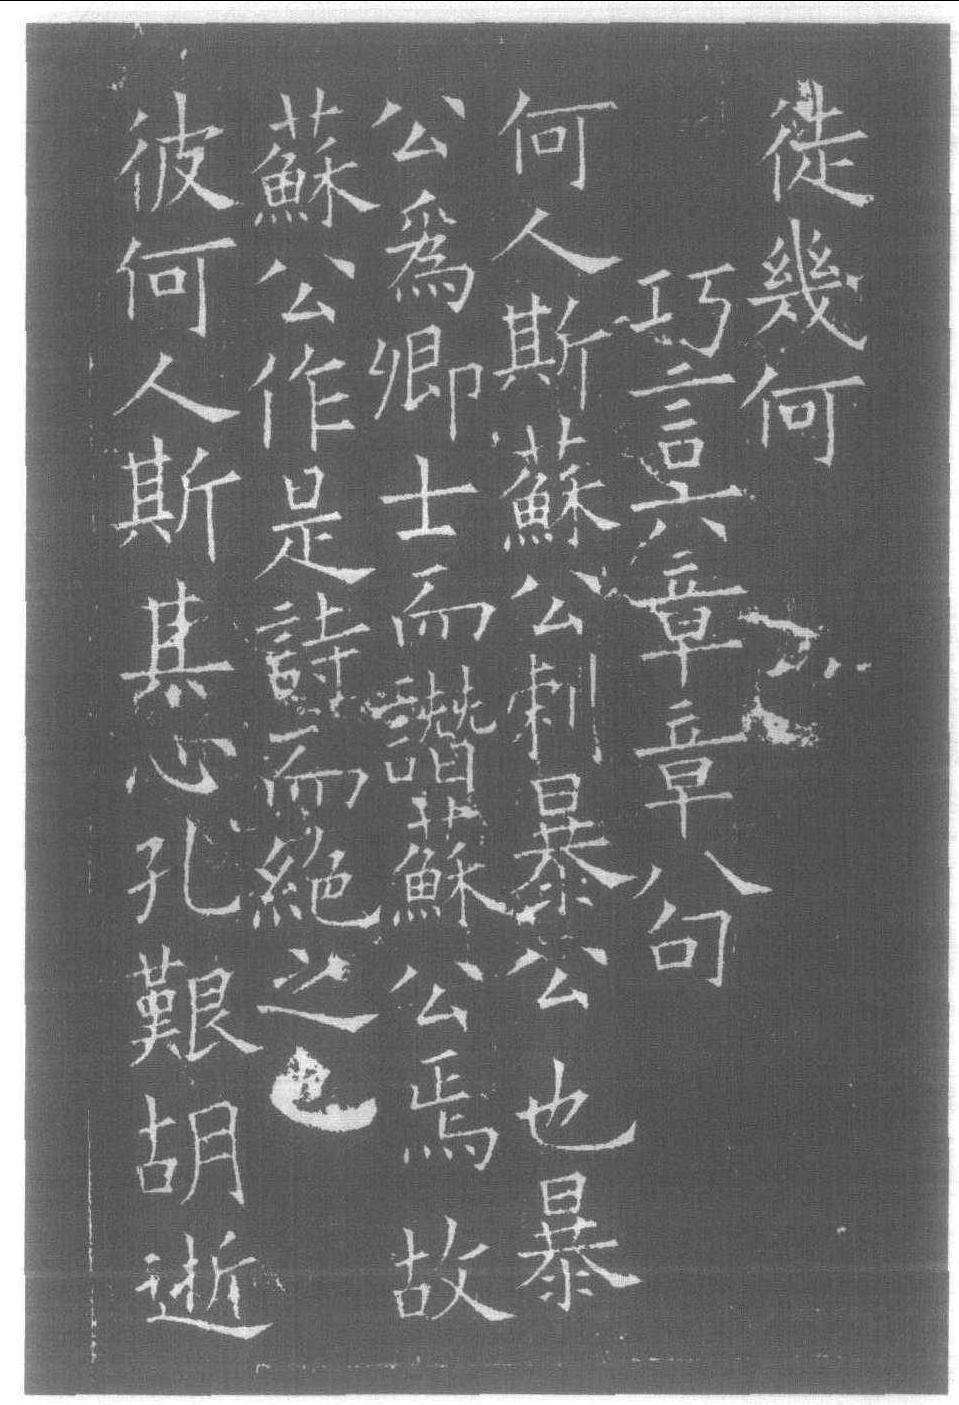 徙幾何
巧言六章章八句
何人斯蘇公刺暴公也暴
公爲卿士而譖蘇公焉故
蘇公作是詩而絕之也
彼何人斯其心孔艱胡逝